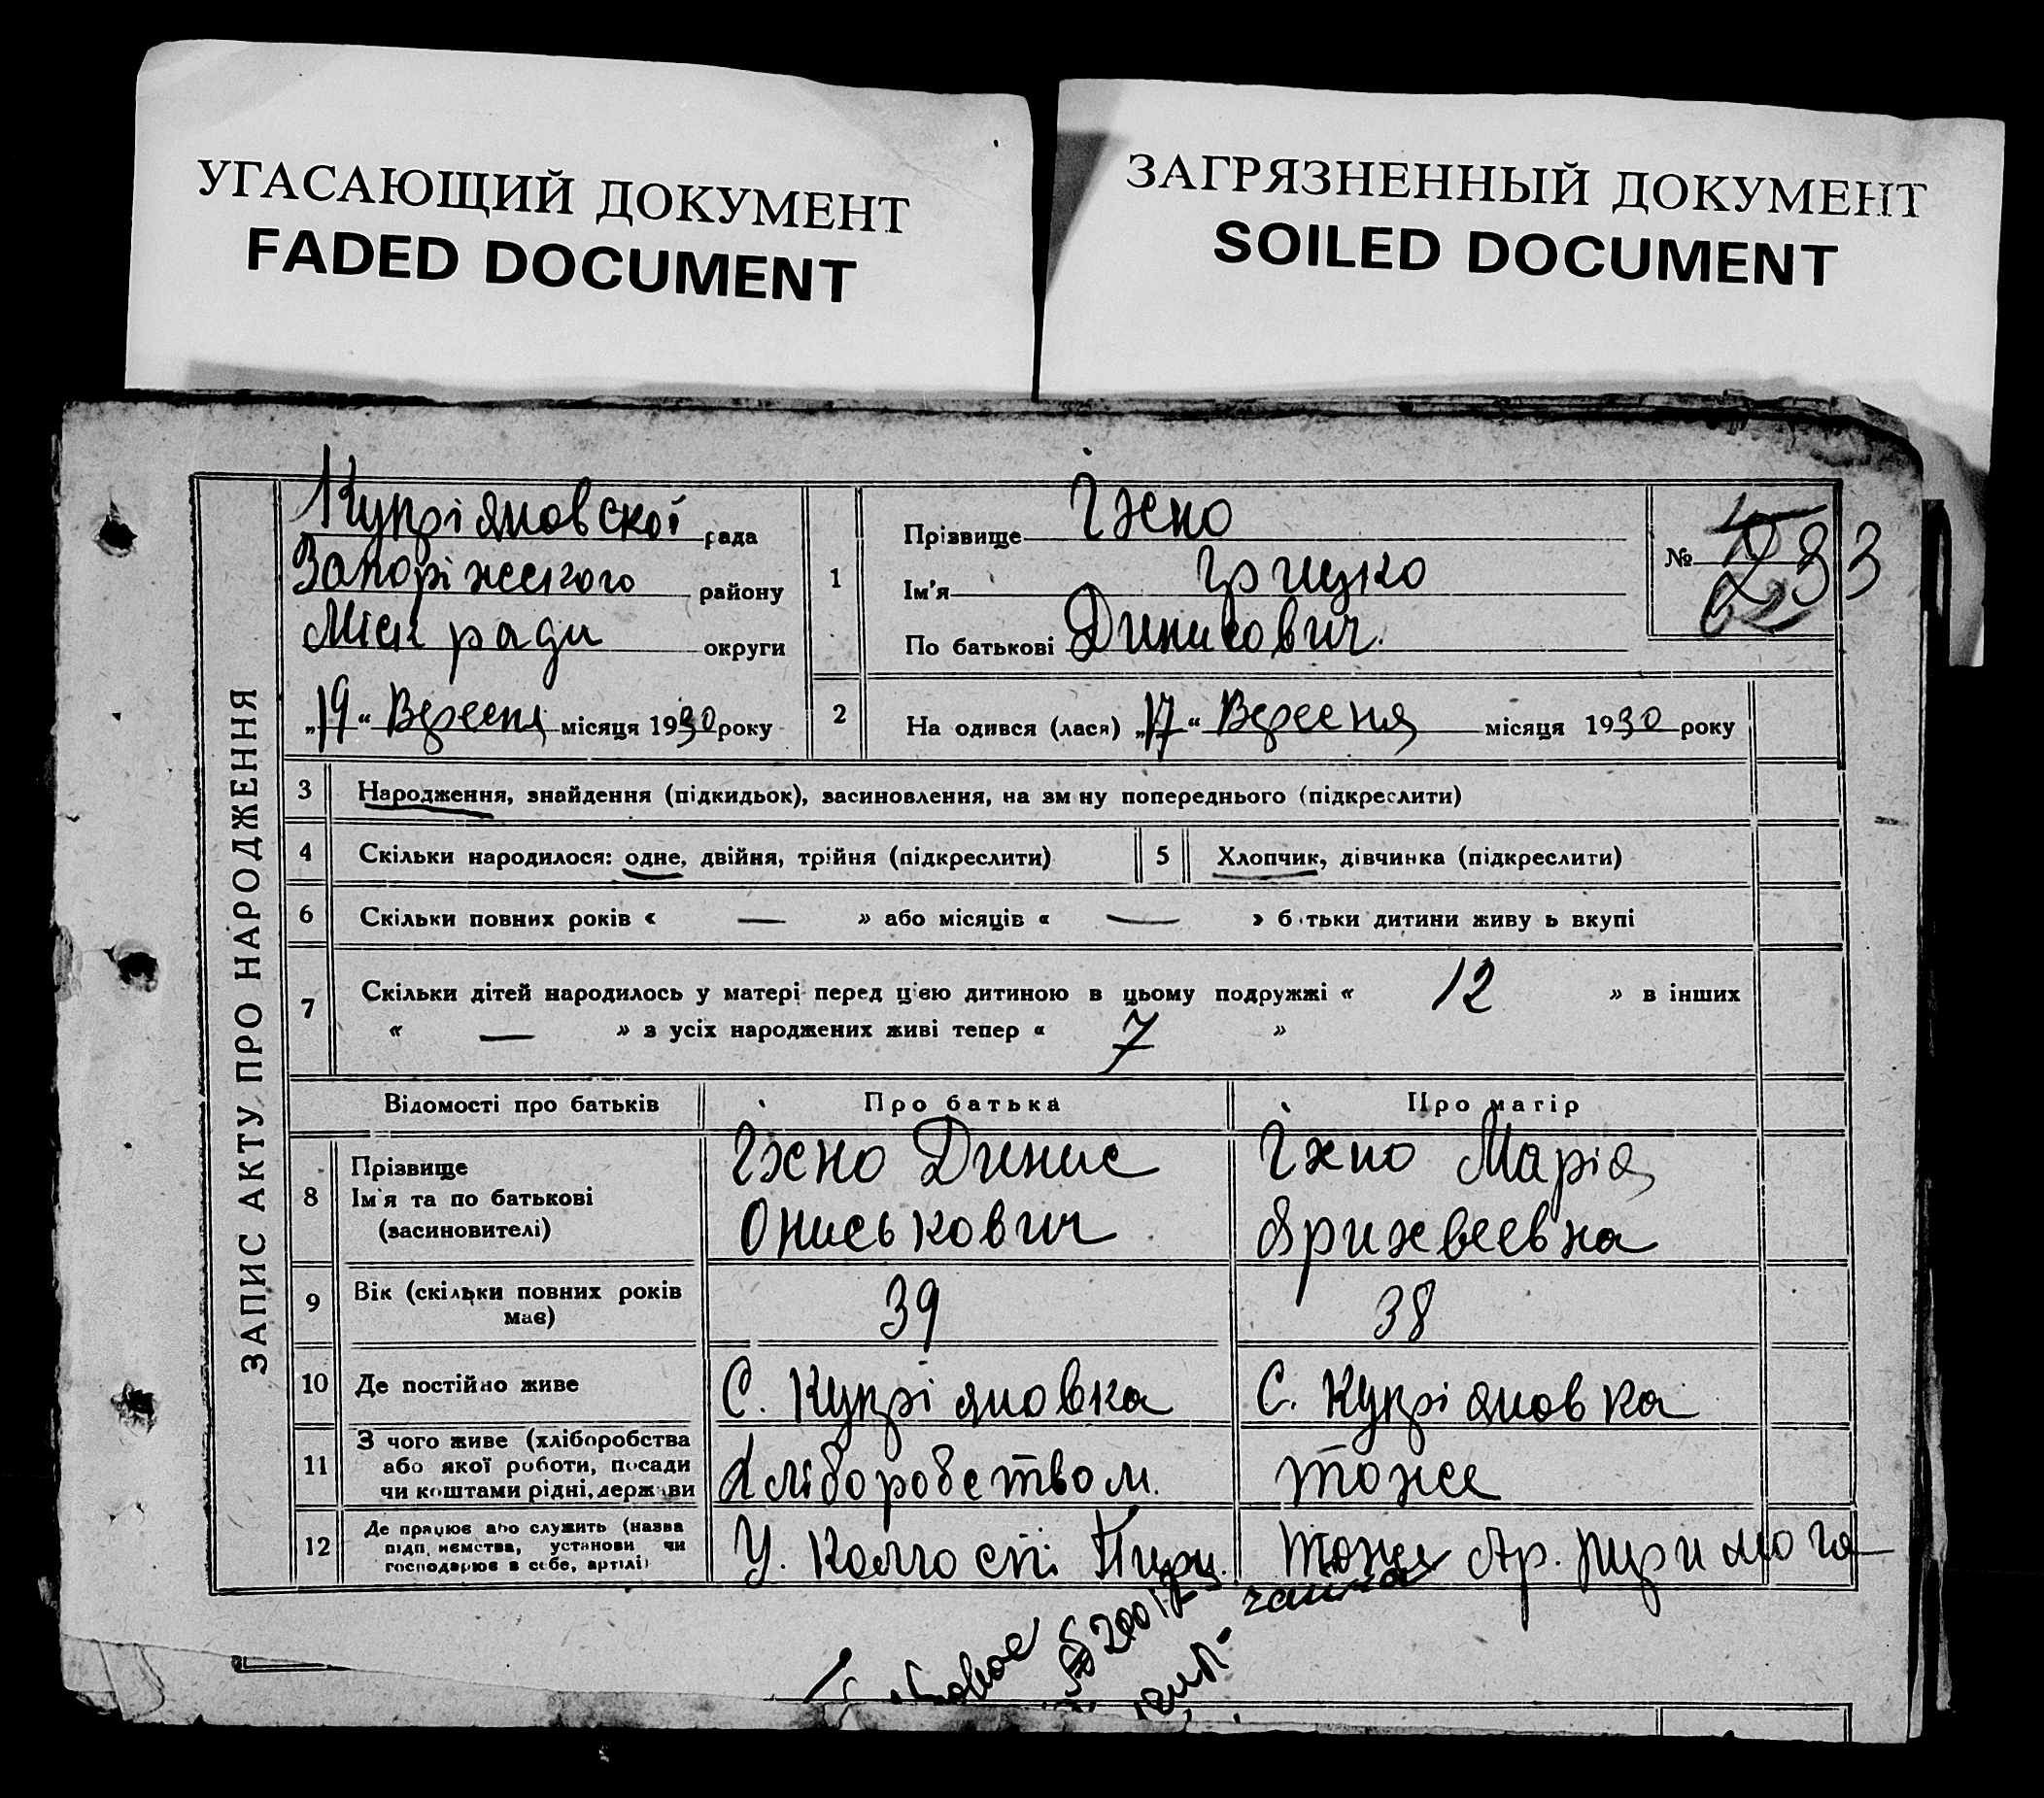 УГАСАЮЩИЙ ДОКУМЕНТ
FADED DOCUMENT
ЗАГРЯЗНЕННЫЙ ДОКУМЕНТ
SOILED DOCUMENT
ЗАПИС АКТУ ПРО НАРОДЖЕННЯ
Купріяновской рада
Запоріжського району
Міск ради округи
„19“ Вересня місяця 1930 року
1
Прізвище Їжно
Ім'я Грицко
По батькові Динисович.
№ 233
62
2 На одився (лася) „17“ Вересня місяця 1930 року
3 Народження, знайдення (підкидьок), засиновлення, на зм ну попереднього (підкреслити)
4 Скільки народилося: одне, двійня, трійня (підкреслити) 5 Хлопчик, дівчинка (підкреслити)
6 Скільки повних років « — » або місяців « — » б тьки дитини живу ь вкупі
7 Скільки дітей народилось у матері перед ц'єю дитиною в цьому подружжі « 12 » в інших
« — » з усіх народжених живі тепер « 7 »
Відомості про батьків Про батька Про матір
8 Прізвище
Ім'я та по батькові
(засиновителі)
Їжно Динис
Ониськович
Їжно Марія
9 Вік (скільки повних років
має)
39 38
10 Де постійно живе С. Купріяновка С. Купріяновка
11 З чого живе (хліборобства
або якої роботи, посади
чи коштами рідні, держави
Хліборобством. тоже
12 Де працює або служить (назва
підп иємства, установи чи
господарює в себе, артілі)
У. тоже